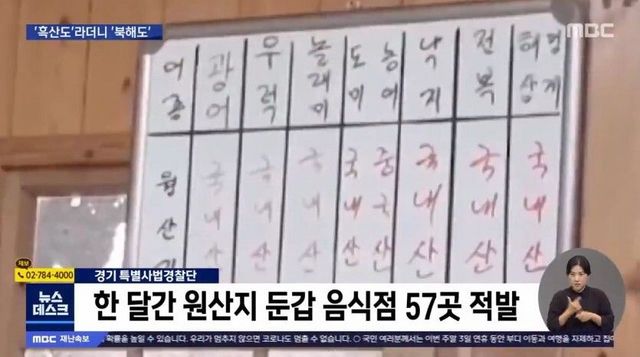 '흑산도'라더니 '북해도'
MBC
어종 광어 우럭 놀래미 도미 농어 낙지 전복 해삼 멍게
원산지 국내산 국내산 국내산 국내산 중국산 국내산 국내산 국내산
제보 02-784-4000
경기 특별사법경찰단
뉴스
데스크
한 달간 원산지 둔갑 음식점 57곳 적발
MBC 재난속보 확률을 높일 수 있습니다. 우리가 멈추지 않으면 코로나도 멈출 수 없습니다. ○ 국민 여러분께서는 이번 주말 3일 연휴 동안 부디 이동과 여행을 자제하고